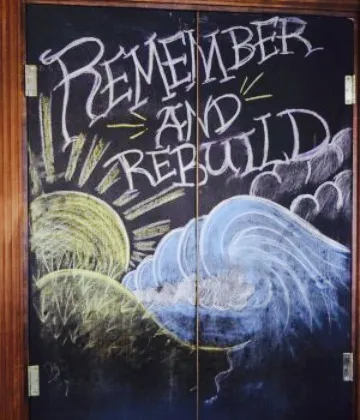 REMEMBER
AND
REBUILD